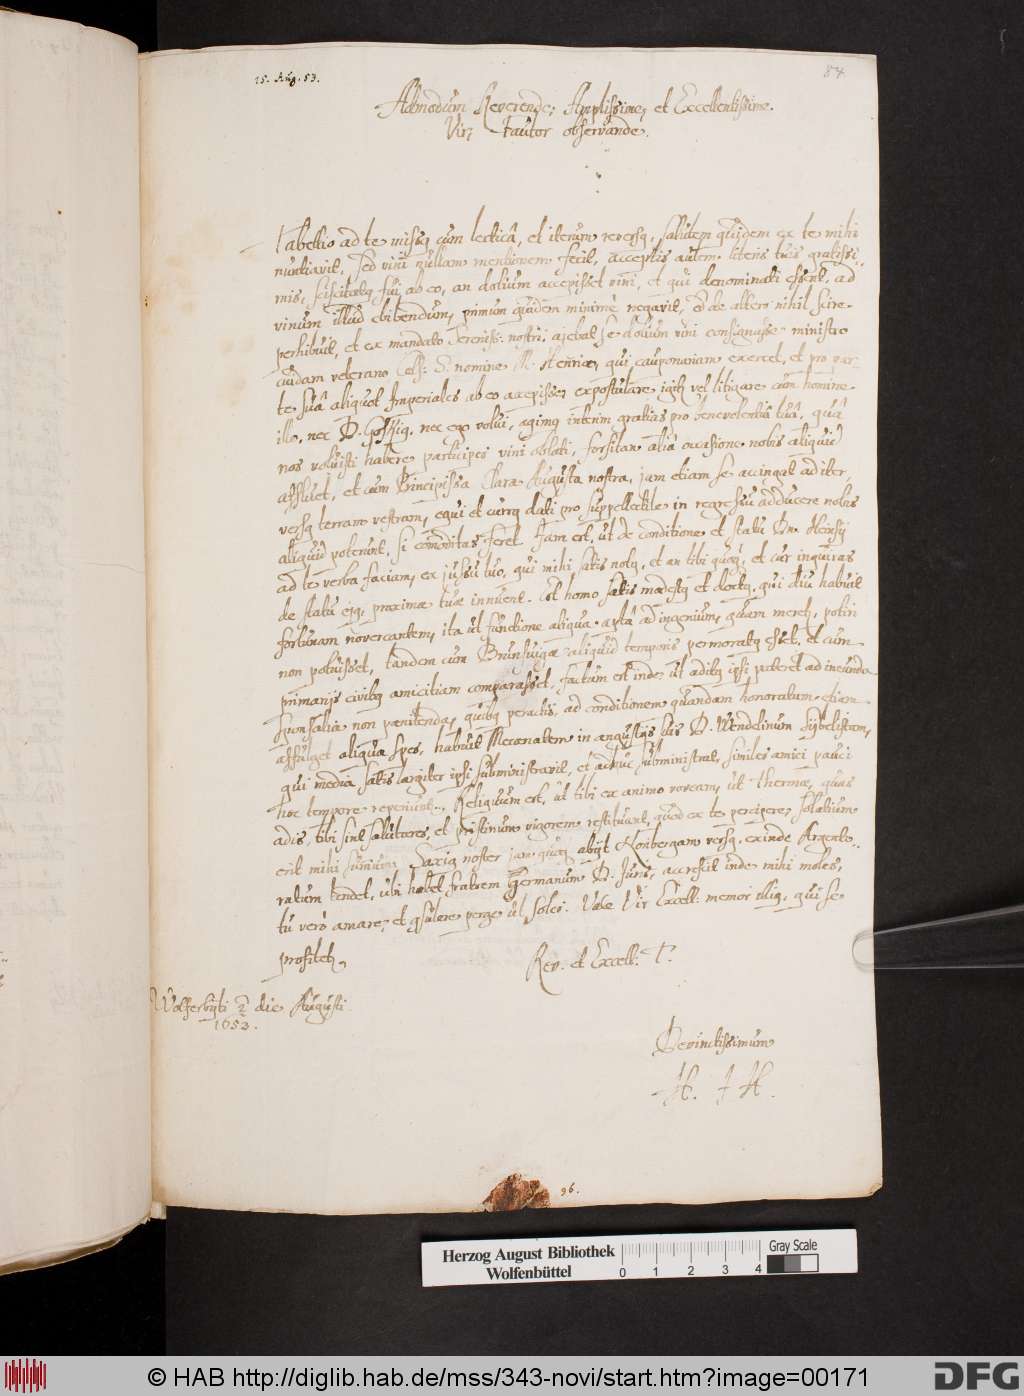 15. Aug. 53.
84
Admodum Reverende, Amplissime, et Excellentissime
Vir, Fautor observande.
Tabellio ad te missq cum lecticâ, et iterum reversq, salutem quidem ex te mihi
nuntiavit, sed vini nullam mentionem fecit, acceptis autem literis tuis gratissi-
mis, sciscitatq fui ab eo, an dolium accepisset vini, et qui denominati essent, ad
vinum illud ebibendum, primum quidem minimè negavit, sed de altero nihil scire
perhibuit, et ex mandato Sereniss: nostri, ajebat se dolium vini consignasse ministro
cuidam veterano Cels: S. nomine M. Henrico, qui cauponariam exercet, et pro par-
te suâ aliquot Imperiales ab eo accepisse, expostulare igitur vel litigare cum homine
illo, nec D. Gosky, nec ego volui, agimq interim gratias pro benevolentiâ tuâ, quâ
nos voluisti habere participes vini oblati, forsitan aliâ occasione nobis aliquid
affluet, et cum Principissa Clara Augusta nostra, jam etiam se accingat ad iter,
versq terram vestram, equi et currq dati pro suppellectile in regressu adducere nobis
aliquid poterunt, si commoditas feret. Jam est, ut de conditione et statu Dn. Hensij
ad te verba faciam, ex jussu tuo, qui mihi satis notq, et an tibi quoq, et cur inquiras
de statu ejq, proximæ tuæ innuent. Est homo satis modestq et doctq, qui diu habuit
fortunam novercantem, ita ut functione aliqua aptâ ad ingenium, quam meretur, potiri
non potuisset, tandem cum Brunsvigæ aliquid temporis permoratq esset, et cum
primarijs civibq amicitiam comparasset, factum est inde ut aditq ipsi pateret ad ineunda
sponsalia non pœnitenda, quibq peractis, ad conditionem quandam honoratam etiam
affulget aliqua spes, habuit Mecœnatem in angustijs suis D. Wendelinum Sybelistam,
qui media satis largiter ipsi subministravit, et adhuc subministrat, similes amici pauci
hoc tempore reperiuntur. Reliquum est, ut tibi ex animo voveam, ut thermæ, quas
adis, tibi sint salutares, et pristinum vigorem restituant, quod ex te percipere, solatium
erit mihi summum. Saxiq noster jam quoq abijt Noribergam versq, exinde Argento-
ratum tendet, ubi habet fratrem Germanum D. Juris, accressit inde mihi moles,
tu verò amare, et consulere perge ut soles. Vale Vir Excell: memor illiq, qui se
profitetur
Rev. et Excell: T.
Wolferbyti 2 die Augusti
1653.
Devinctissimum
H. J H.
96.
Herzog August Bibliothek
Wolfenbüttel
0 1 2 3 4
Gray Scale
© HAB http://diglib.hab.de/mss/343-novi/start.htm?image=00171
DFG